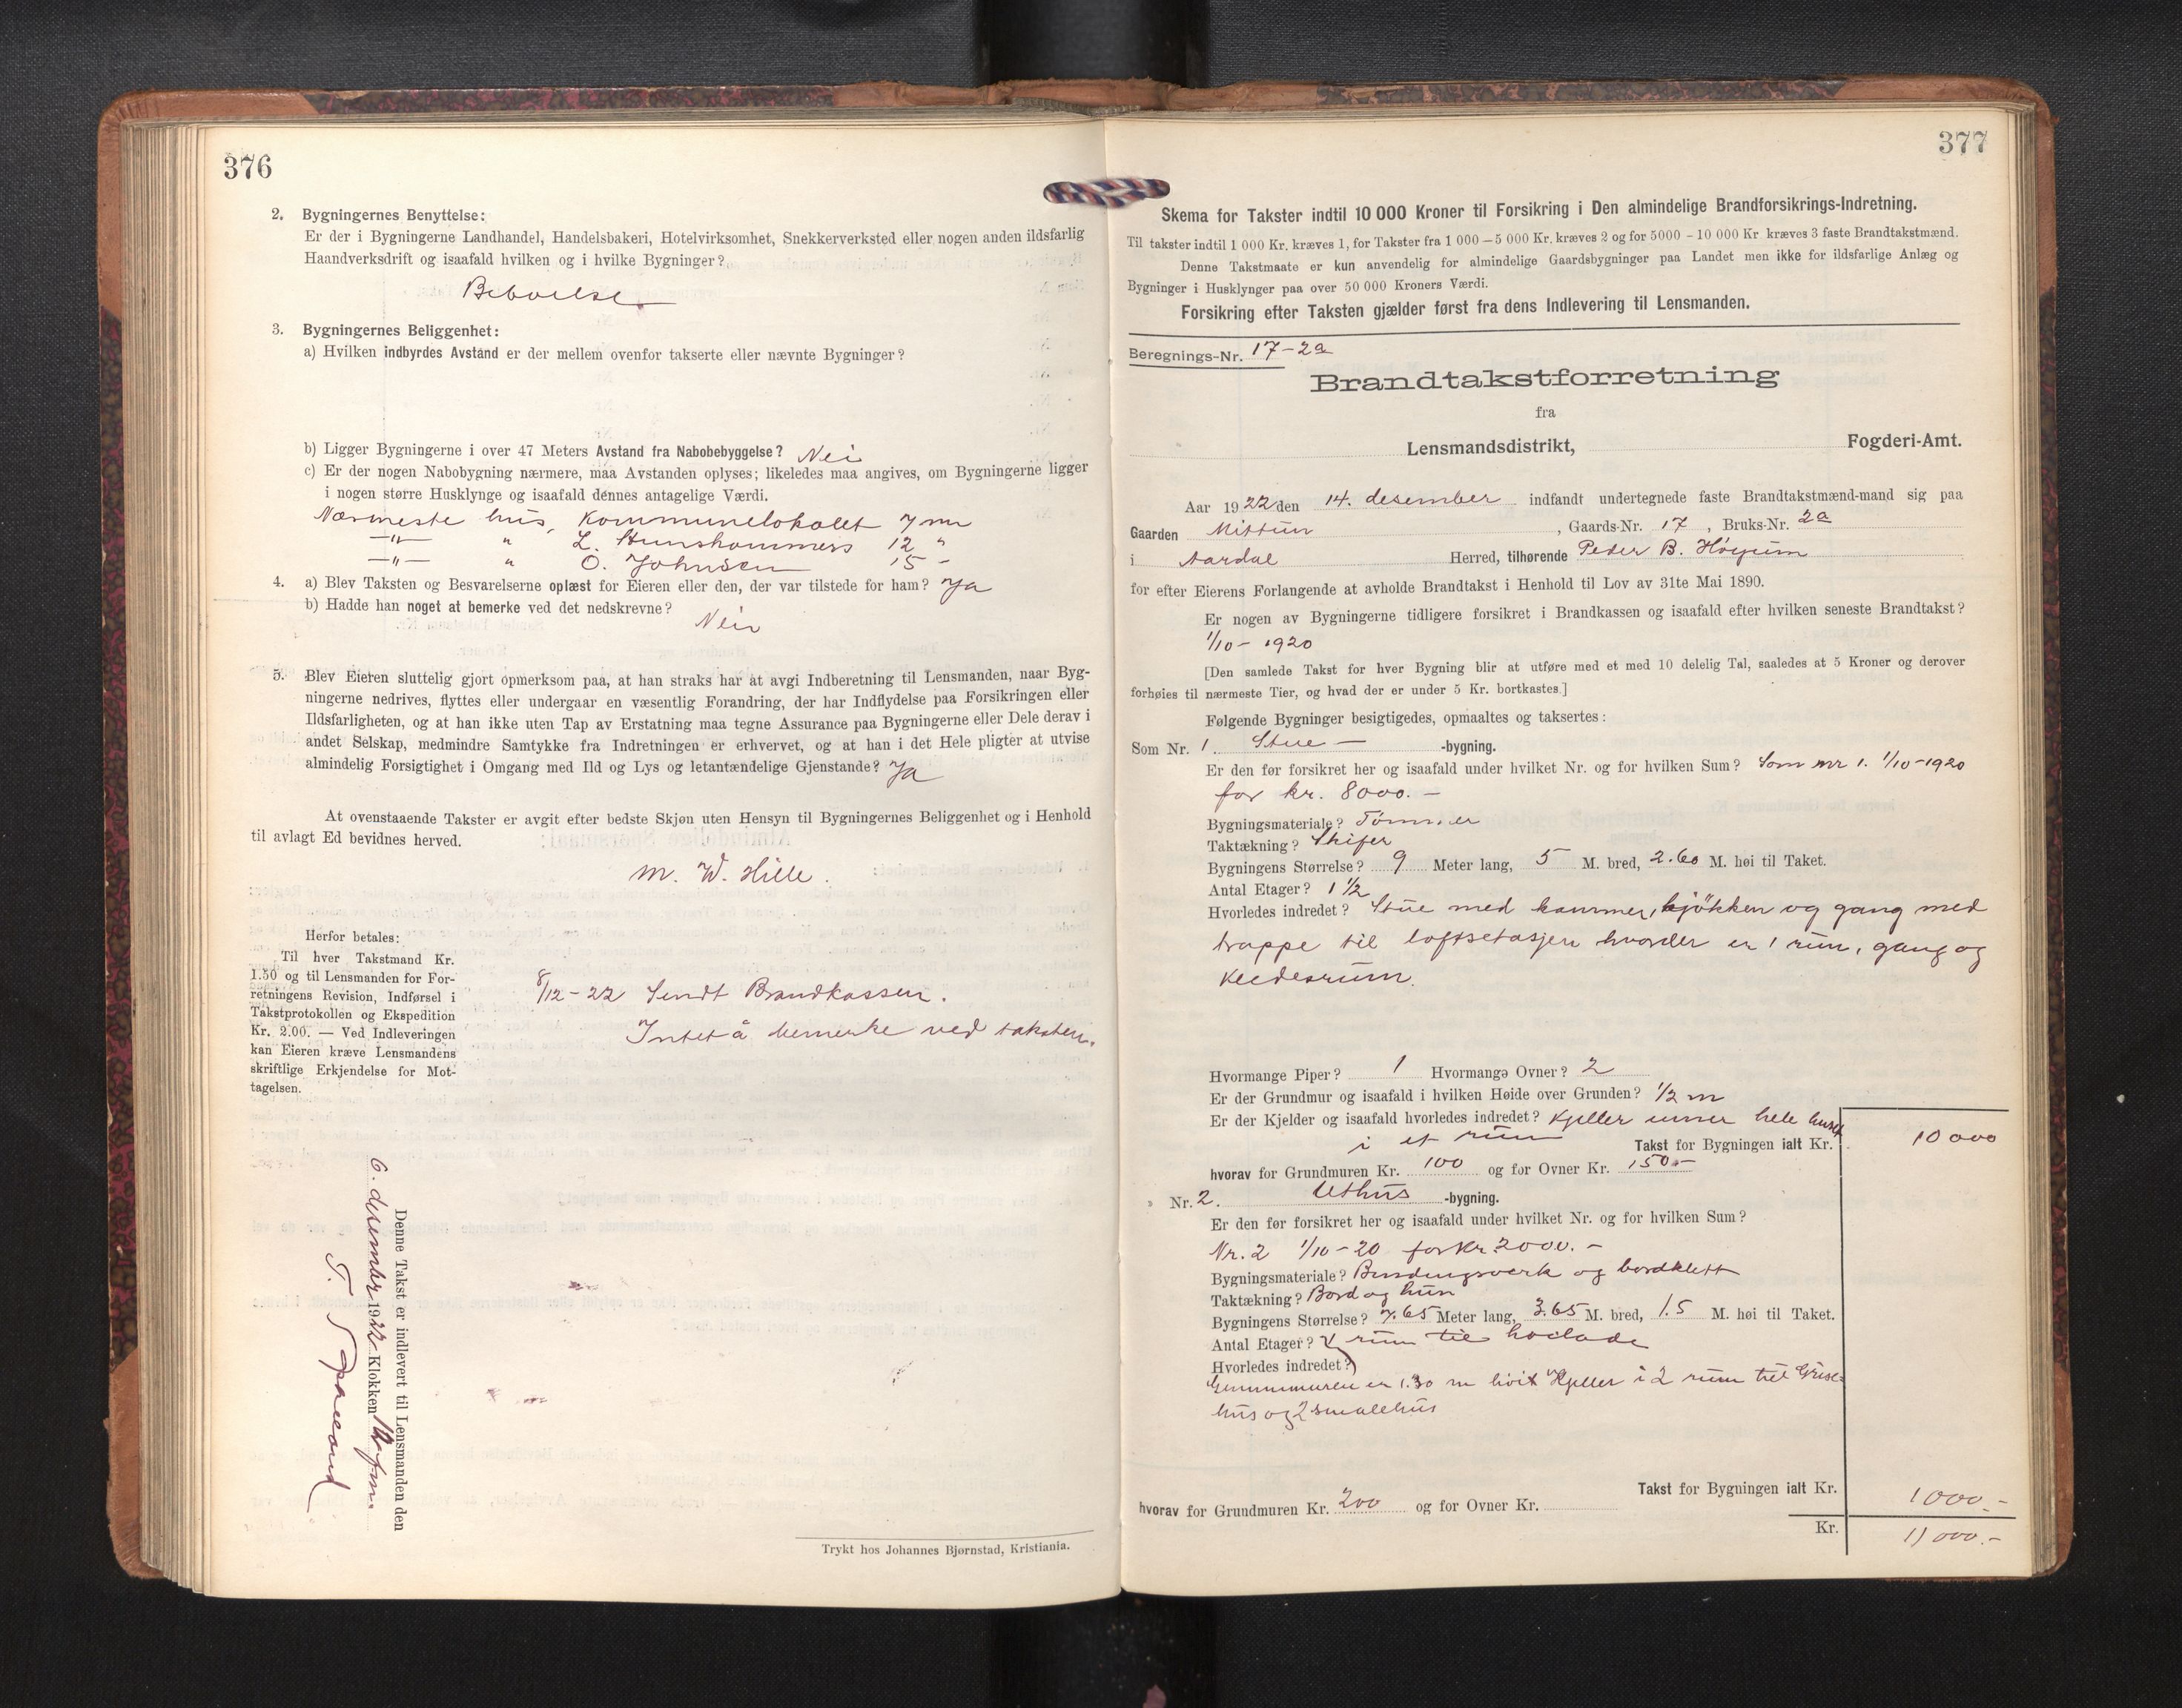 376
2. Bygningernes Benyttelse:
Er der i Bygningerne Landhandel, Handelsbakeri, Hotelvirksomhet, Snekkerverksted eller nogen anden ildsfarlig
Haandverksdrift og isaafald hvilken og i hvilke Bygninger?
Beboelse
3. Bygningernes Beliggenhet:
a) Hvilken indbyrdes Avstand er der mellem ovenfor takserte eller nævnte Bygninger?
b) Ligger Bygningerne i over 47 Meters Avstand fra Nabobebyggelse? Nei
c) Er der nogen Nabobygning nærmere, maa Avstanden oplyses; likeledes maa angives, om Bygningerne ligger
i nogen større Husklynge og isaafald dennes antagelige Værdi.
Nærmeste hus, Kommunelokalet 7 m
—"— " L. Hunshammers 12 "
—"— " O. Johnsen 15 -
4. a) Blev Taksten og Besvarelserne oplæst for Eieren eller den, der var tilstede for ham? Ja
b) Hadde han noget at bemerke ved det nedskrevne?
Nei
5. Blev Eieren sluttelig gjort opmerksom paa, at han straks har at avgi Indberetning til Lensmanden, naar Byg-
ningerne nedrives, flyttes eller undergaar en væsentlig Forandring, der har Indflydelse paa Forsikringen eller
Ildsfarligheten, og at han ikke uten Tap av Erstatning maa tegne Assurance paa Bygningerne eller Dele derav i
andet Selskap, medmindre Samtykke fra Indretningen er erhvervet, og at han i det Hele pligter at utvise
almindelig Forsigtighet i Omgang med Ild og Lys og letantændelige Gjenstande? Ja
At ovenstaaende Takster er avgit efter bedste Skjøn uten Hensyn til Bygningernes Beliggenhet og i Henhold
til avlagt Ed bevidnes herved.
M. W. Hille.
Herfor betales:
Til hver Takstmand Kr.
1.50 og til Lensmanden for For-
retningens Revision, Indførsel i
Takstprotokollen og Ekspedition
Kr. 2.00. — Ved Indleveringen
kan Eieren kræve Lensmandens
skriftlige Erkjendelse for Mot-
tagelsen.
8/12-22 Sendt Brandkassen.
Intet å bemerke ved taksten.
Denne Takst er indlevert til Lensmanden den
6. desember 1922 Klokken 12 fm.
Trykt hos Johannes Bjørnstad, Kristiania.
377
Skema for Takster indtil 10 000 Kroner til Forsikring i Den almindelige Brandforsikrings-Indretning.
Til takster indtil 1 000 Kr. kræves 1, for Takster fra 1 000 – 5 000 Kr. kræves 2 og for 5000 – 10 000 Kr kræves 3 faste Brandtakstmænd.
Denne Takstmaate er kun anvendelig for almindelige Gaardsbygninger paa Landet men ikke for ildsfarlige Anlæg og
Bygninger i Husklynger paa over 50 000 Kroners Værdi.
Forsikring efter Taksten gjælder først fra dens Indlevering til Lensmanden.
Beregnings-Nr. 17-2a
Brandtakstforretning
fra
Lensmandsdistrikt, Fogderi-Amt.
Aar 1922 den 14. desember indfandt undertegnede faste Brandtakstmænd-mand sig paa
Gaarden Mittun, Gaards-Nr. 17, Bruks-Nr. 2a
i Aardal Herred, tilhørende Peder B. Høyum
for efter Eierens Forlangende at avholde Brandtakst i Henhold til Lov av 31te Mai 1890.
Er nogen av Bygningerne tidligere forsikret i Brandkassen og isaafald efter hvilken seneste Brandtakst?
1/10 - 1920
[Den samlede Takst for hver Bygning blir at utføre med et med 10 delelig Tal, saaledes at 5 Kroner og derover
forhøies til nærmeste Tier, og hvad der er under 5 Kr. bortkastes.]
Følgende Bygninger besigtigedes, opmaaltes og taksertes:
Som Nr. 1. Stue — -bygning.
Er den før forsikret her og isaafald under hvilket Nr. og for hvilken Sum? Som nr 1. 1/10-1920
for kr. 8000.-
Bygningsmateriale? Tømmer
Taktækning? Skifer
Bygningens Størrelse? 9 Meter lang, 5 M. bred, 2.60 M. høi til Taket.
Antal Etager? 1 1/2
Hvorledes indredet? Stue med kammer, kjøkken og gang med
trappe til loftsetasjen hvorder er 1 rum, gang og
kledesrum.
Hvormange Piper? 1 Hvormange Ovner? 2
Er der Grundmur og isaafald i hvilken Høide over Grunden? 1/2 m
Er der Kjelder og isaafald hvorledes indredet? Kjeller unner hele huset
i et rum Takst for Bygningen ialt Kr. 10000
hvorav for Grundmuren Kr. 100 og for Ovner Kr. 150.-
" Nr. 2. Uthus -bygning.
Er den før forsikret her og isaafald under hvilket Nr. og for hvilken Sum?
Nr. 2 1/10-20 for kr. 2000.-
Bygningsmateriale? Bindingsverk og bordklett
Taktækning? Bord og hun
Bygningens Størrelse? 7.65 Meter lang, 3.65 M. bred, 1.5 M. høi til Taket.
Antal Etager? 2 rum til hølade
Hvorledes indredet?
Grunnmuren er 1.30 m hvit Kjeller i 2 rum til Grise-
hus og 2 smalehus
Takst for Bygningen ialt Kr. 1000.-
hvorav for Grundmuren Kr. 200 og for Ovner Kr.
Kr. 11000.-